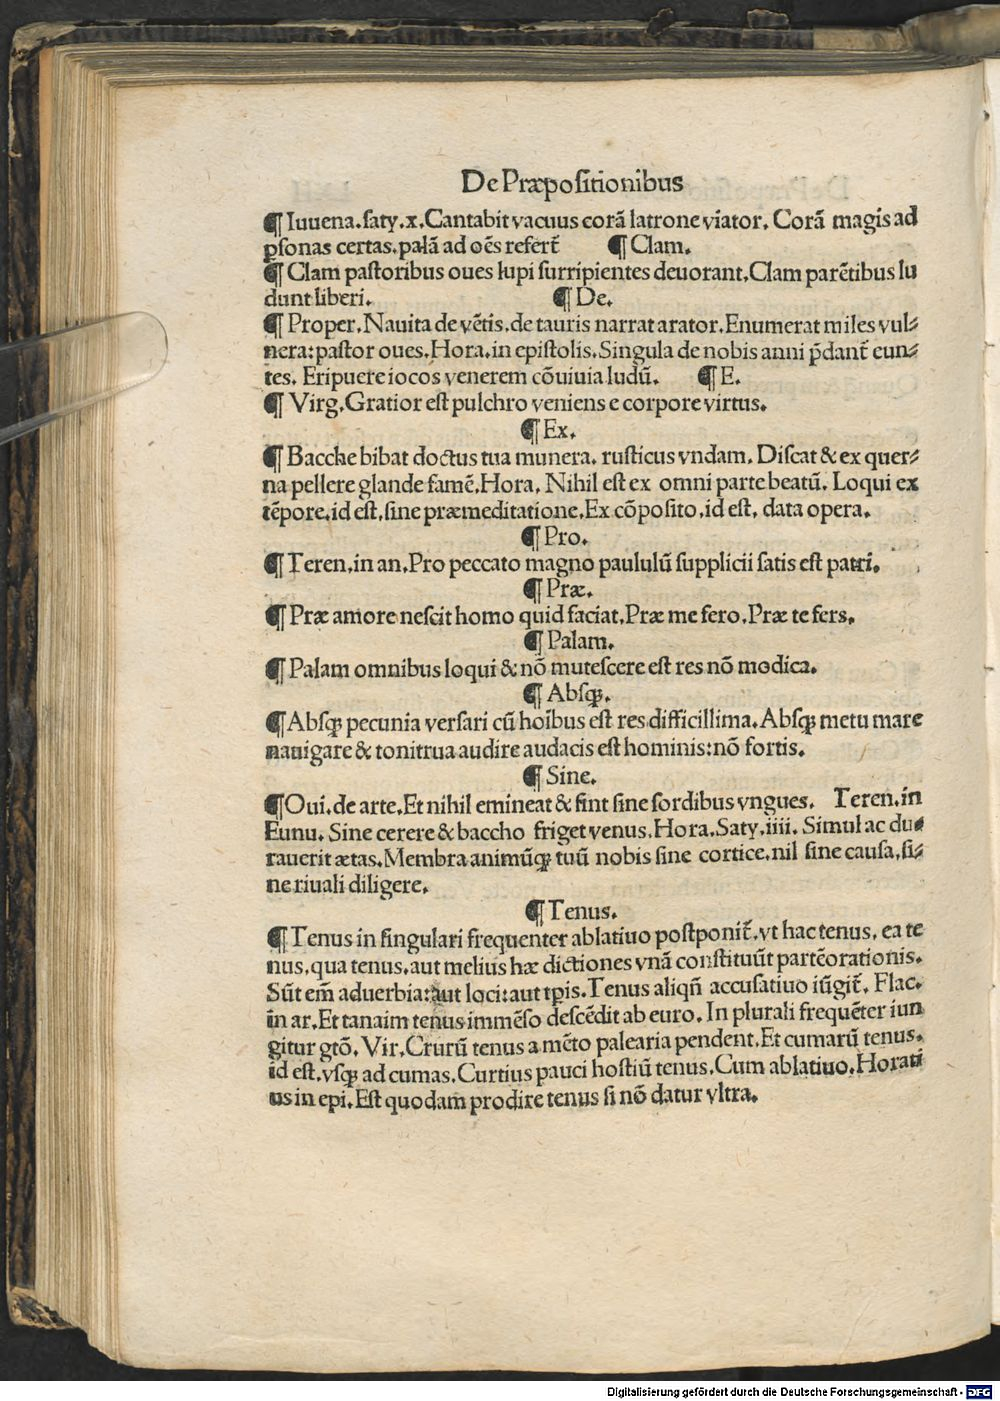 De Præpositionibus
¶ Iuuena.saty.x.Cantabit vacuus corā latrone viator. Corā magis ad
ꝑsonas certas.palā ad oēs refert̄ ¶ Clam.
¶ Clam pastoribus oues lupi surripientes deuorant.Clam parētibus lu
dunt liberi. ¶ De.
¶ Proper.Nauita de vētis.de tauris narrat arator.Enumerat miles vul⸗
nera:pastor oues.Hora.in epistolis.Singula de nobis anni p̄dant̄ eun⸗
tes. Eripuere iocos venerem cōuiuia ludū. ¶ E.
¶ Virg.Gratior est pulchro veniens e corpore virtus.
¶ Ex.
¶ Bacche bibat doctus tua munera. rusticus vndam. Discat & ex quer⸗
na pellere glande famē.Hora. Nihil est ex omni parte beatū. Loqui ex
tēpore.id est.sine præmeditatione.Ex cōposito.id est. data opera.
¶ Pro.
¶ Teren.in an.Pro peccato magno paululū supplicii satis est patri.
¶ Præ.
¶ Præ amore nescit homo quid faciat.Præ me fero.Præ te fers.
¶ Palam.
¶ Palam omnibus loqui & nō mutescere est res nō modica.
¶ Absqꝫ.
¶ Absqꝫ pecunia versari cū hoībus est res difficillima.Absqꝫ metu mare
nauigare & tonitrua audire audacis est hominis:nō fortis.
¶ Sine.
¶ Oui.de arte.Et nihil emineat & sint sine sordibus vngues. Teren.in
Eunu. Sine cerere & baccho friget venus.Hora.Saty.iiii. Simul ac du⸗
rauerit ætas.Membra animūqꝫ tuū nobis sine cortice.nil sine causa.si⸗
ne riuali diligere.
¶ Tenus.
¶ Tenus in singulari frequenter ablatiuo postponit̄.vt hac tenus. ea te
nus.qua tenus.aut melius hæ dictiones vnā constituūt partē orationis.
Sūt em̄ aduerbia:aut loci:aut tp̄is.Tenus aliqn̄ accusatiuo iūgit̄. Flac.
in ar.Et tanaim tenus immēso descēdit ab euro. In plurali frequēter iun
gitur gtō. Vir.Crurū tenus a mēto palearia pendent.Et cumarū tenus.
id est.vsqꝫ ad cumas.Curtius pauci hostiū tenus.Cum ablatiuo.Horati
us in epi.Est quodam prodire tenus si nō datur vltra.
Digitalisierung gefördert durch die Deutsche Forschungsgemeinschaft - DFG